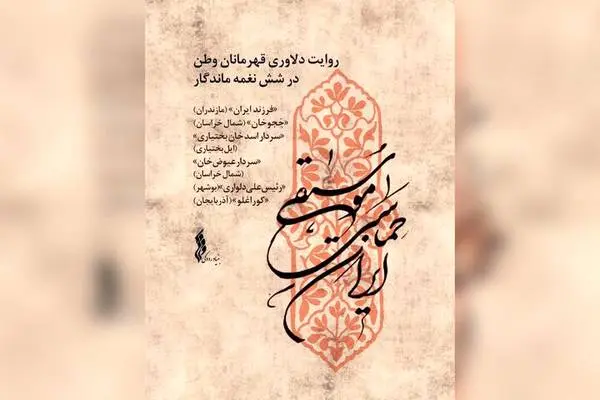 روایت دلاوری قهرمانان وطن
در شش نغمه ماندگار
«فرزند ایران» (مازندران)
«جَجوخان» (شمال خراسان)
«سردار اسدخان بختیاری»
(ایل بختیاری)
«سردار عیوض‌خان»
(شمال خراسان)
«رئیس‌علی دلواری» (بوشهر)
«کوراغلو» (آذربایجان)
موسیقی
حماسی
ایران
بنیاد رودکی